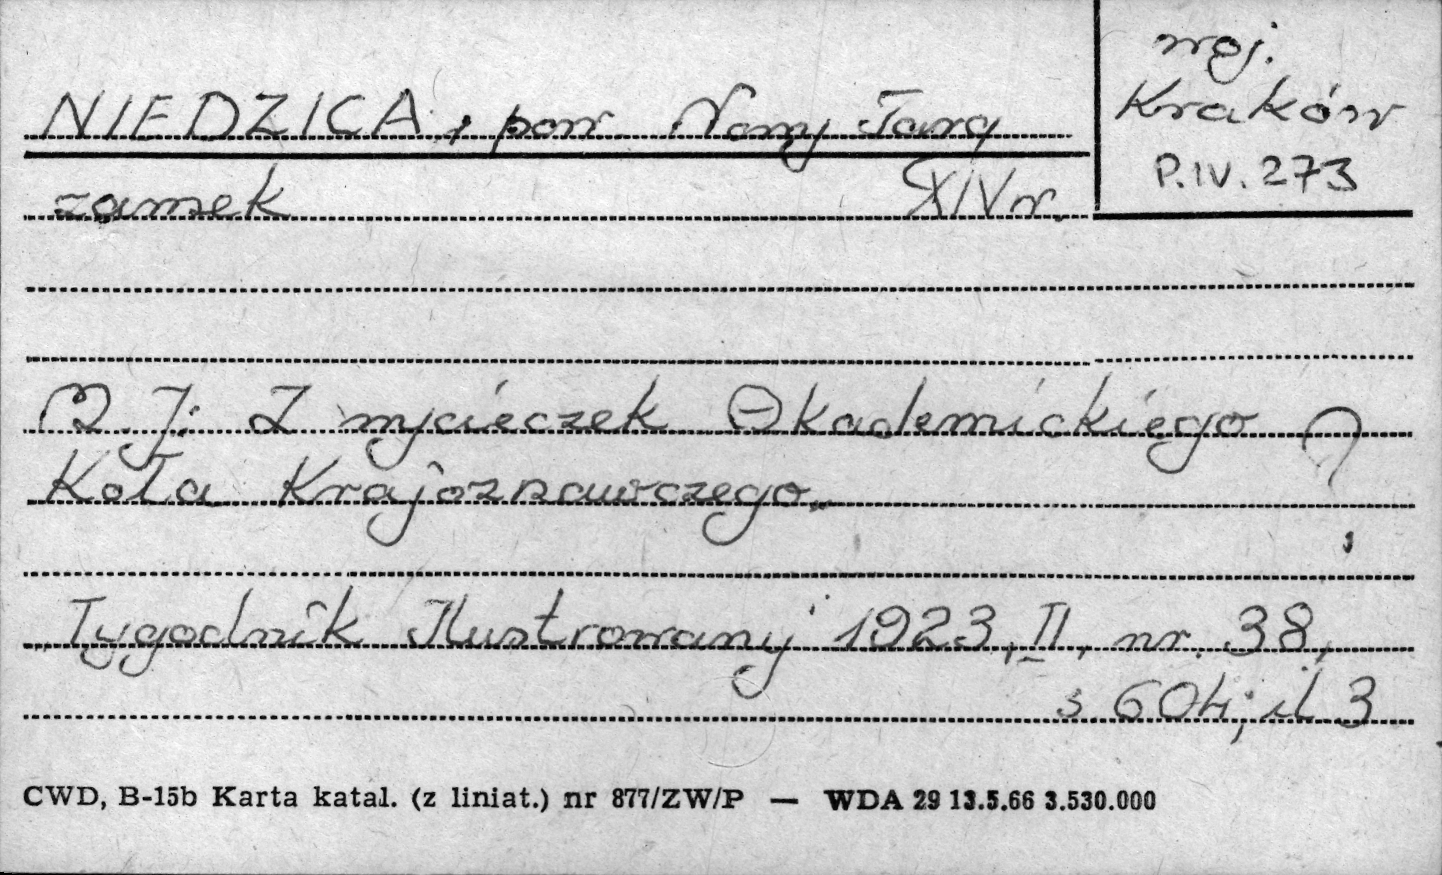 woj.
Kraków
P.IV.273
NIEDZICA, pow. Nowy Targ
zamek XIV w.
J.: Z wycieczek Akademickiego
Koła Krajoznawczego.
Tygodnik Ilustrowany 1923, II, nr. 38,
s 604; il 3
CWD, B-15b Karta katal. (z liniat.) nr 877/ZW/P — WDA 29 13.5.66 3.530.000